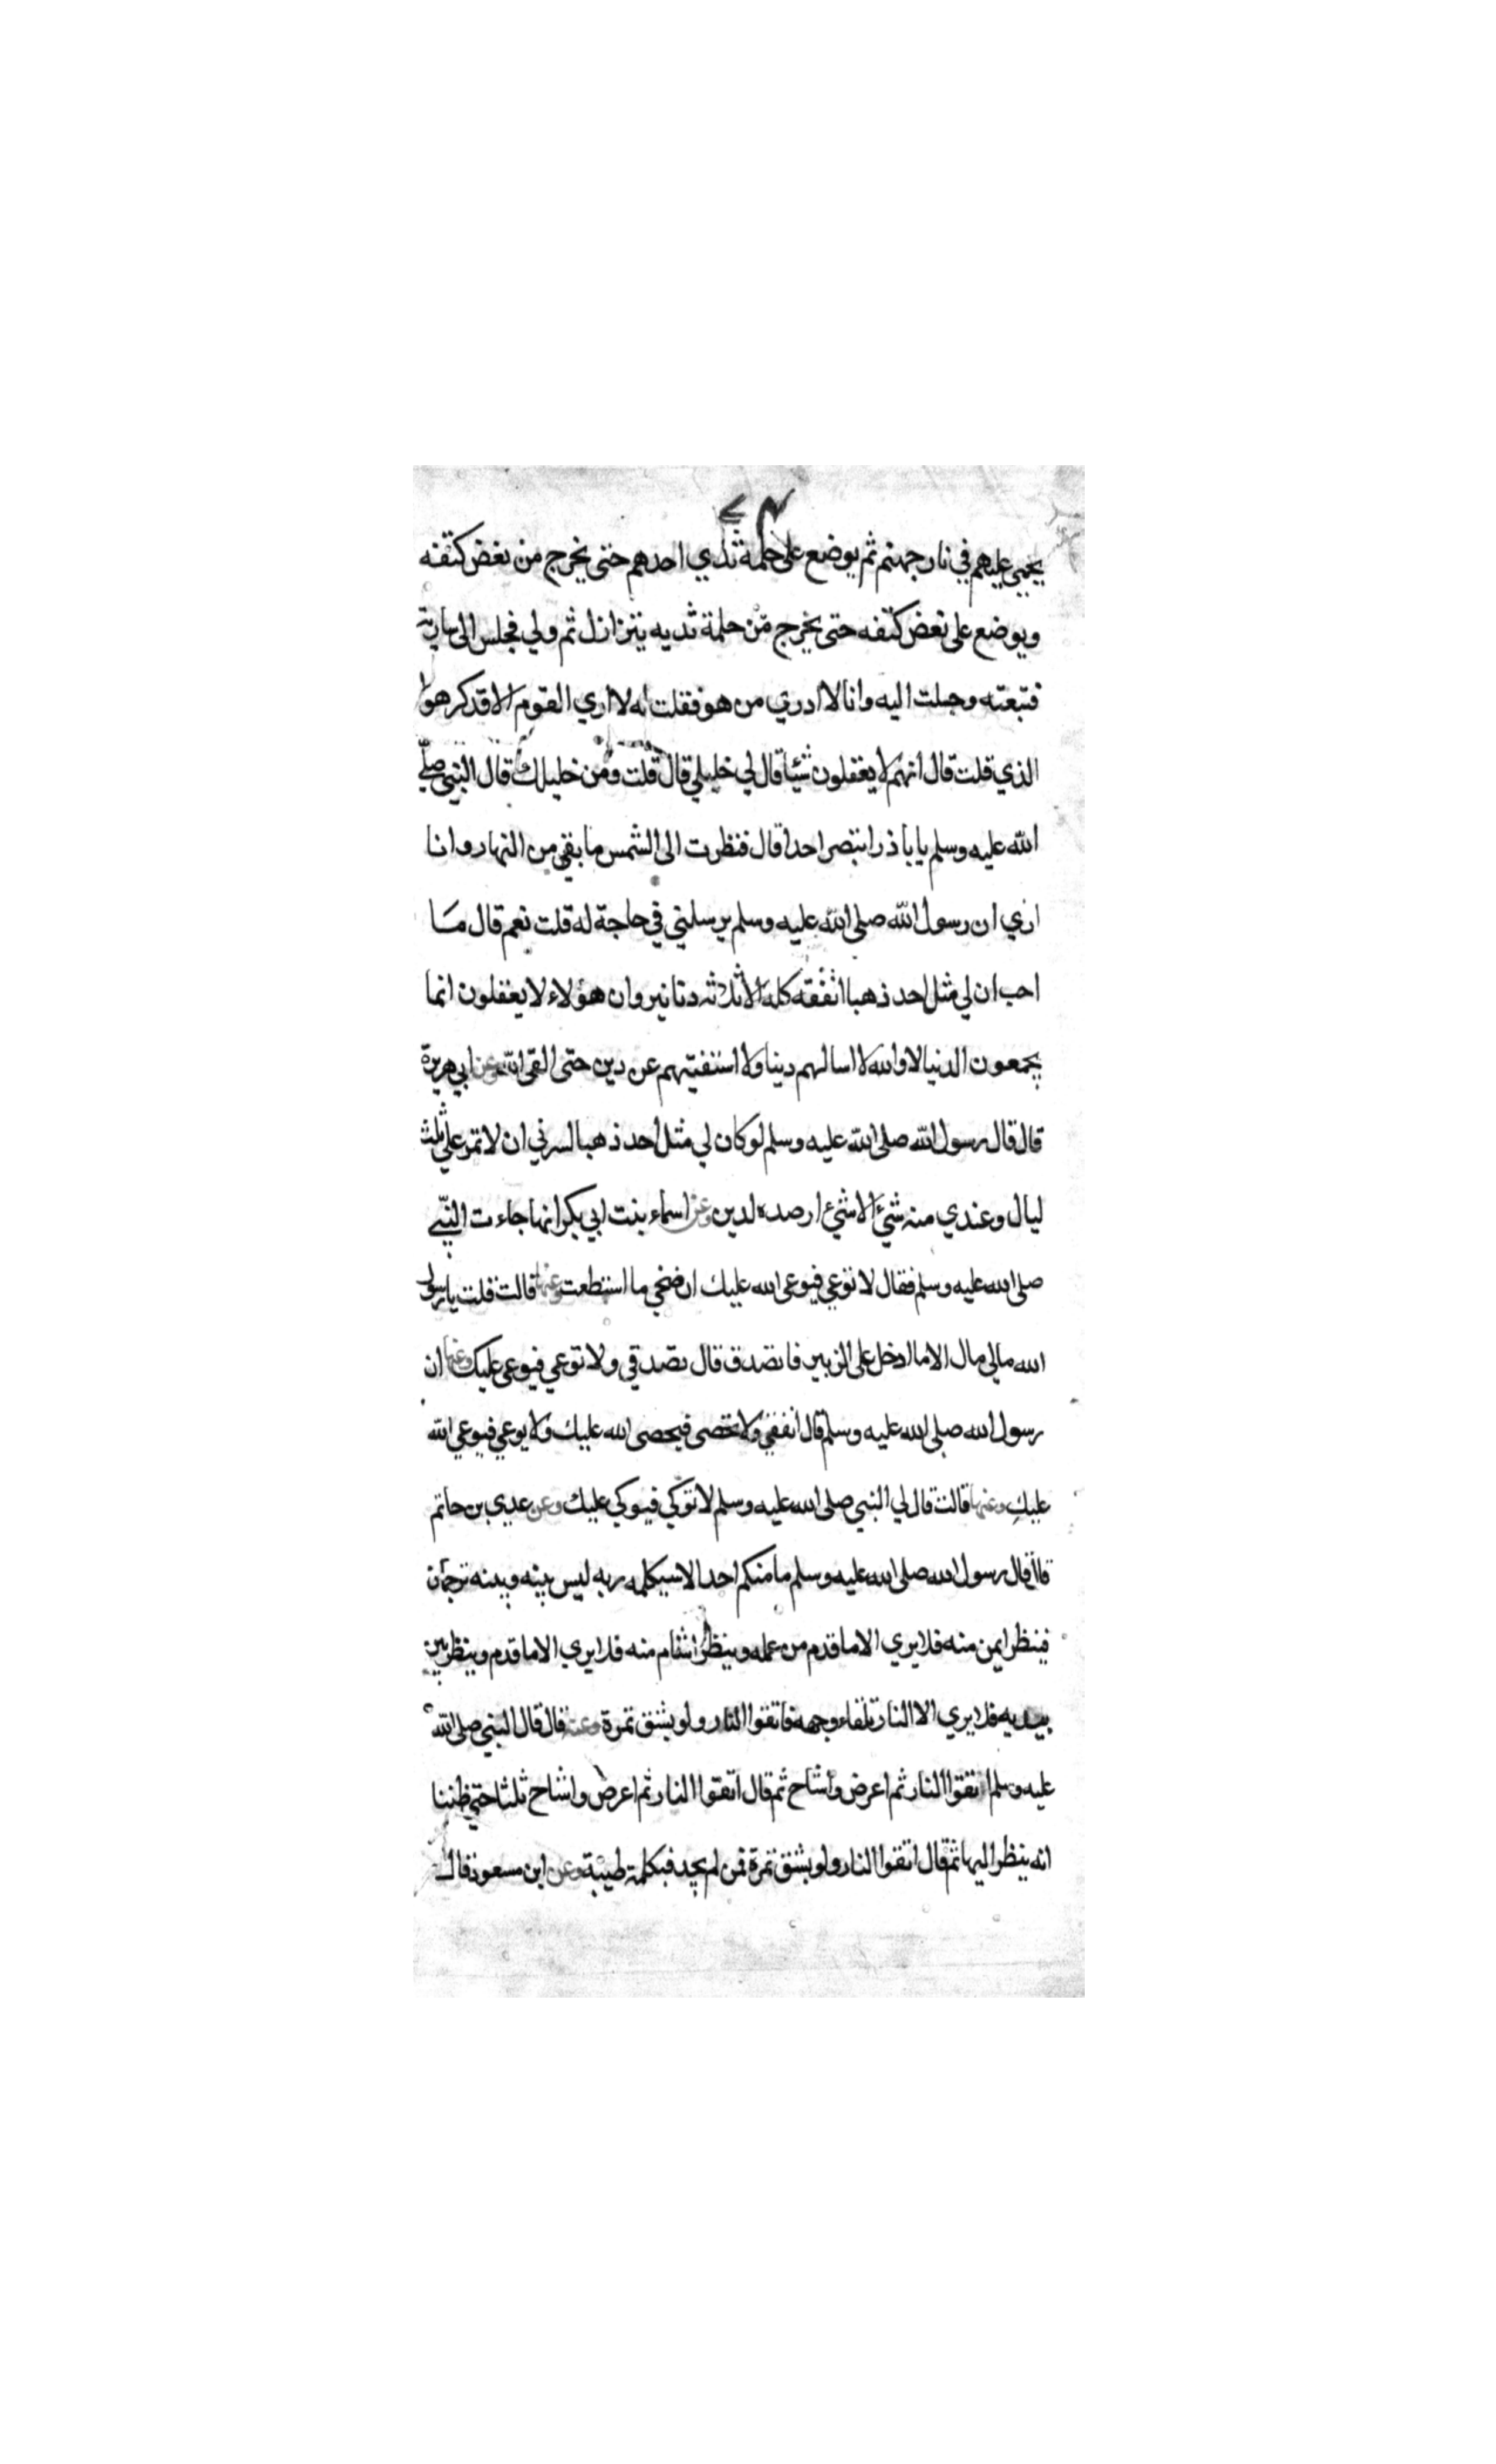 يحمى عليهم في نار جهنم ثم يوضع على حلمة ثدي احدهم حتى يخرج من نغض كتفه
ويوضع على نغض كتفه حتى يخرج من حلمة ثديه يتزازل ثم ولي فجلس الى سارية
فتبعته وجلت اليه وانا لا ادري من هو فقلت له لا اري القوم الا قد كرهوا
الذي قلت قال انهم لا يعقلون شيئا قال لي خليلي قال قلت ومن خليلك قال النبي صلى
الله عليه وسلم يابا ذر اتبصر احدا قال فنظرت الى الشمس ما بقي من النهار وانا
اري ان رسول الله صلى الله عليه وسلم يرسلني في حاجة له قلت نعم قال ما
احب ان لي مثل احد ذهبا انفقه كله الا ثلاثه دنانير وان هؤلاء لا يعقلون انما
يجمعون الدنيا لا والله لا اسالهم دنيا ولا استفتيهم عن دين حتى القى الله وعن ابي هريرة
قال قال رسول الله صلى الله عليه وسلم لو كان لي مثل احد ذهبا لسرني ان لا تمر علي ثلث
ليال وعندي منه شئ الا شئ ارصده لدين وعن اسماء بنت ابي بكر انها جاءت النبي
صلى الله عليه وسلم فقال لا توعي فيوعى الله عليك ارضخي ما استطعت وعنها قالت قلت يا رسول
الله مالي مال الا ما ادخل على الزبير فاتصدق قال تصدقي ولا توعي فيوعى عليك وعنها ان
رسول الله صلى الله عليه وسلم قال انفقي ولا تحصى فيحصى الله عليك ولا يوعي فيوعي الله
عليك وعنها قالت قال لي النبي صلى الله عليه وسلم لا توكي فيوكي عليك وعن عدي بن حاتم
قال قال رسول الله صلى الله عليه وسلم ما منكم احدا لا سيكلمه ربه ليس بينه وبينه ترجمان
فينظر ايمن منه فلا يري الا ما قدم من عمله وينظر اشام منه فلا يري الا ما قدم وينظر بين
يديه فلا يري الا النار تلقاء وجهه فاتقوا النار ولو بشق تمرة وعنه قال قال النبي صلى الله
عليه وسلم اتقوا النار ثم اعرض واشاح ثم قال اتقوا النار ثم اعرض واشاح ثلثا حتي ظننا
انه ينظر اليها ثم قال اتقوا النار ولو بشق تمرة فمن لم يجد فبكلمة طيبة وعن ابن مسعود قال